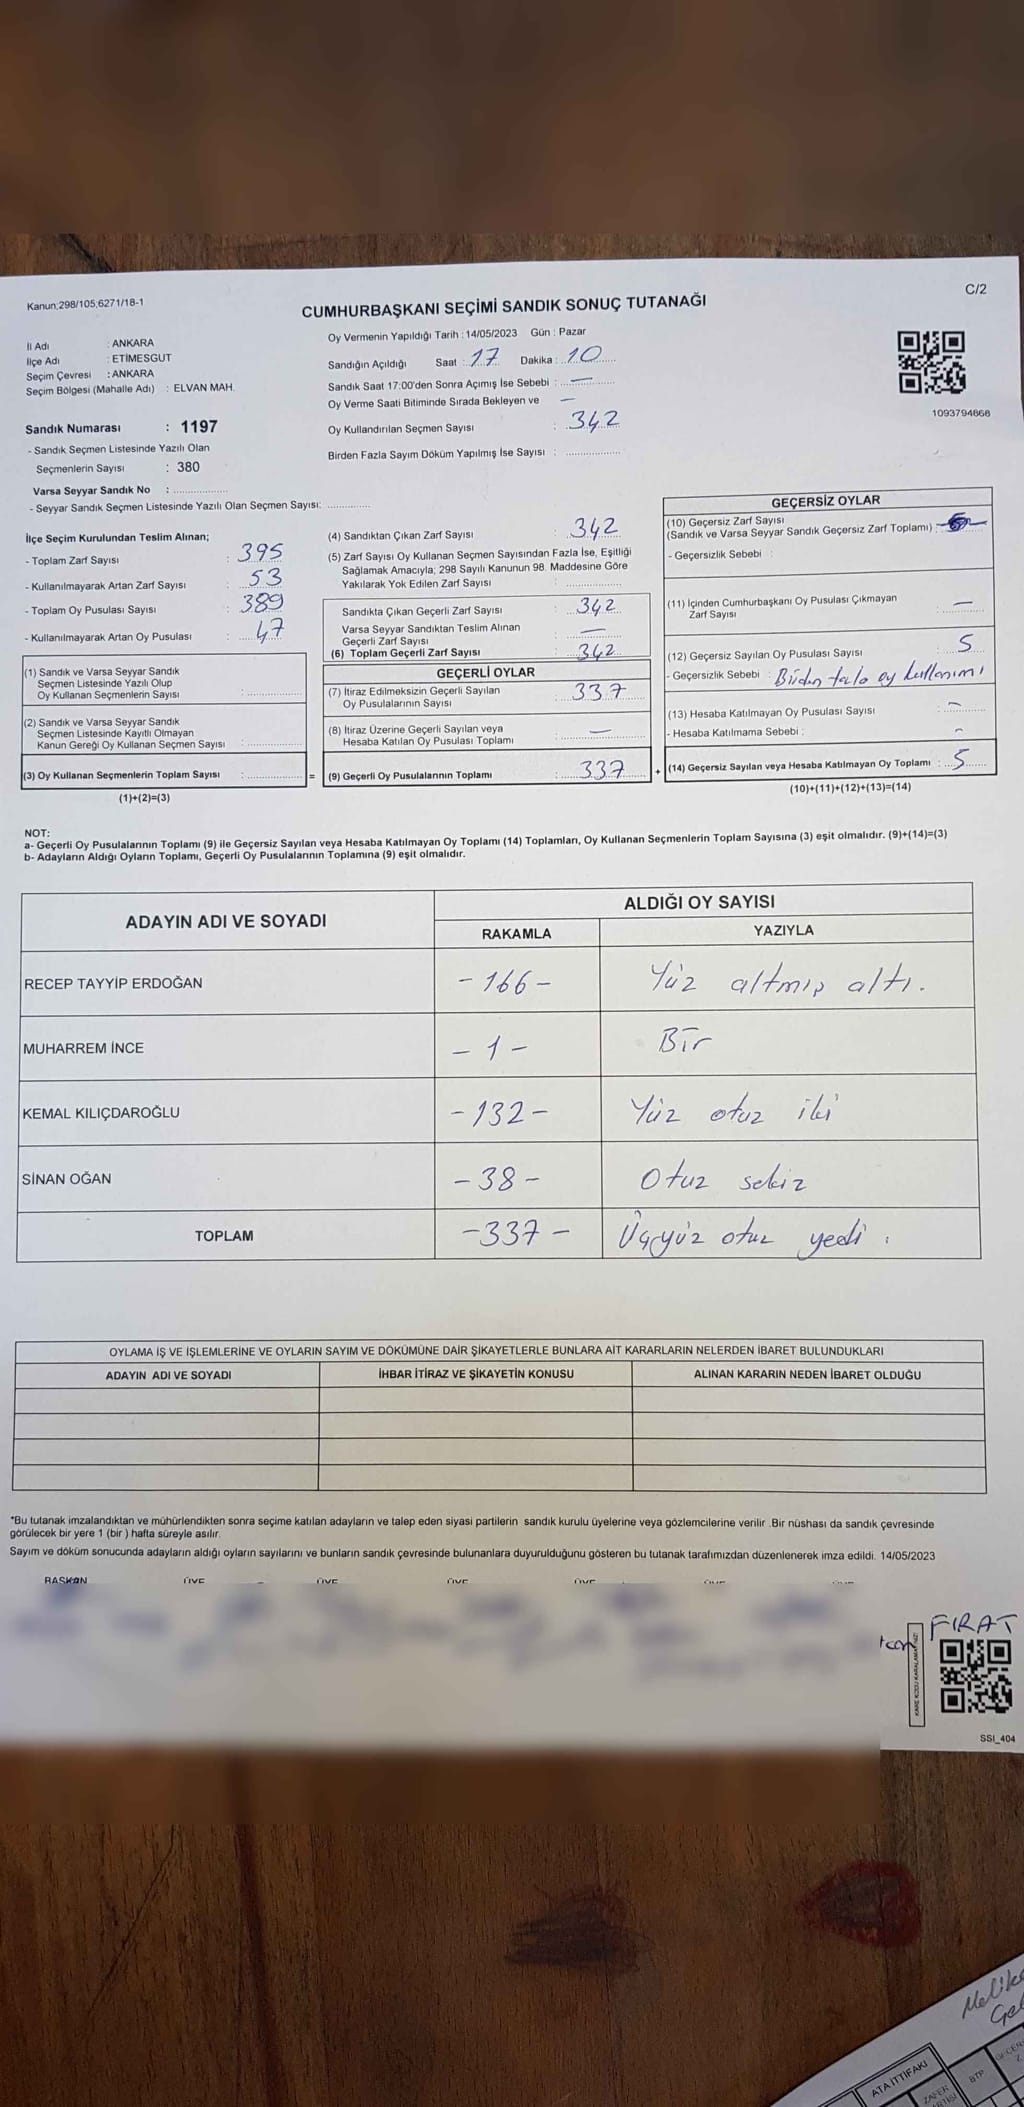 Kanun;298/105;6271/18-1
C/2
CUMHURBAŞKANI SEÇİMİ SANDIK SONUÇ TUTANAĞI
İl Adı : ANKARA
İlçe Adı : ETİMESGUT
Seçim Çevresi : ANKARA
Seçim Bölgesi (Mahalle Adı) : ELVAN MAH.
Sandık Numarası : 1197
- Sandık Seçmen Listesinde Yazılı Olan
Seçmenlerin Sayısı : 380
Varsa Seyyar Sandık No :
- Seyyar Sandık Seçmen Listesinde Yazılı Olan Seçmen Sayısı:
Oy Vermenin Yapıldığı Tarih : 14/05/2023 Gün : Pazar
Sandığın Açıldığı Saat : 17 Dakika : 10
Sandık Saat 17:00'den Sonra Açımış İse Sebebi : —
Oy Verme Saati Bitiminde Sırada Bekleyen ve —
Oy Kullandırılan Seçmen Sayısı : 342
Birden Fazla Sayım Döküm Yapılmış İse Sayısı :
1093794868
İlçe Seçim Kurulundan Teslim Alınan;
- Toplam Zarf Sayısı : 395
- Kullanılmayarak Artan Zarf Sayısı : 53
- Toplam Oy Pusulası Sayısı : 389
- Kullanılmayarak Artan Oy Pusulası : 47
(1) Sandık ve Varsa Seyyar Sandık
Seçmen Listesinde Yazılı Olup
Oy Kullanan Seçmenlerin Sayısı :
(2) Sandık ve Varsa Seyyar Sandık
Seçmen Listesinde Kayıtlı Olmayan
Kanun Gereği Oy Kullanan Seçmen Sayısı :
(3) Oy Kullanan Seçmenlerin Toplam Sayısı : =
(1)+(2)=(3)
(4) Sandıktan Çıkan Zarf Sayısı : 342
(5) Zarf Sayısı Oy Kullanan Seçmen Sayısından Fazla İse, Eşitliği
Sağlamak Amacıyla; 298 Sayılı Kanunun 98. Maddesine Göre
Yakılarak Yok Edilen Zarf Sayısı :
Sandıkta Çıkan Geçerli Zarf Sayısı : 342
Varsa Seyyar Sandıktan Teslim Alınan
Geçerli Zarf Sayısı : —
(6) Toplam Geçerli Zarf Sayısı : 342
GEÇERLİ OYLAR
(7) İtiraz Edilmeksizin Geçerli Sayılan
Oy Pusulalarının Sayısı : 337
(8) İtiraz Üzerine Geçerli Sayılan veya
Hesaba Katılan Oy Pusulası Toplamı : —
(9) Geçerli Oy Pusulalarının Toplamı : 337 +
GEÇERSİZ OYLAR
(10) Geçersiz Zarf Sayısı
(Sandık ve Varsa Seyyar Sandık Geçersiz Zarf Toplamı) :
- Geçersizlik Sebebi :
(11) İçinden Cumhurbaşkanı Oy Pusulası Çıkmayan
Zarf Sayısı : —
(12) Geçersiz Sayılan Oy Pusulası Sayısı : 5
- Geçersizlik Sebebi : Birden fazla oy kullanımı
(13) Hesaba Katılmayan Oy Pusulası Sayısı : -
- Hesaba Katılmama Sebebi : -
(14) Geçersiz Sayılan veya Hesaba Katılmayan Oy Toplamı : 5
(10)+(11)+(12)+(13)=(14)
NOT:
a- Geçerli Oy Pusulalarının Toplamı (9) ile Geçersiz Sayılan veya Hesaba Katılmayan Oy Toplamı (14) Toplamları, Oy Kullanan Seçmenlerin Toplam Sayısına (3) eşit olmalıdır. (9)+(14)=(3)
b- Adayların Aldığı Oyların Toplamı, Geçerli Oy Pusulalarının Toplamına (9) eşit olmalıdır.
ADAYIN ADI VE SOYADI
ALDIĞI OY SAYISI
RAKAMLA YAZIYLA
RECEP TAYYİP ERDOĞAN -166- Yüz altmış altı.
MUHARREM İNCE -1- Bir
KEMAL KILIÇDAROĞLU -132- Yüz otuz iki
SİNAN OĞAN -38- Otuz sekiz
TOPLAM -337- Üçyüz otuz yedi.
OYLAMA İŞ VE İŞLEMLERİNE VE OYLARIN SAYIM VE DÖKÜMÜNE DAİR ŞİKAYETLERLE BUNLARA AİT KARARLARIN NELERDEN İBARET BULUNDUKLARI
ADAYIN ADI VE SOYADI İHBAR İTİRAZ VE ŞİKAYETİN KONUSU ALINAN KARARIN NEDEN İBARET OLDUĞU
*Bu tutanak imzalandıktan ve mühürlendikten sonra seçime katılan adayların ve talep eden siyasi partilerin sandık kurulu üyelerine veya gözlemcilerine verilir .Bir nüshası da sandık çevresinde
görülecek bir yere 1 (bir ) hafta süreyle asılır.
Sayım ve döküm sonucunda adayların aldığı oyların sayılarını ve bunların sandık çevresinde bulunanlara duyurulduğunu gösteren bu tutanak tarafımızdan düzenlenerek imza edildi. 14/05/2023
BAŞKAN ÜYE ÜYE ÜYE ÜYE ÜYE ÜYE
FIRAT
KARE KODU KARALAMAYINIZ!
SSI_404
Melike
ATA İTTİFAKI
ZAFER
BTP